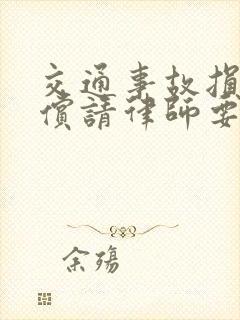 交通事故損
償請律師要
余殤